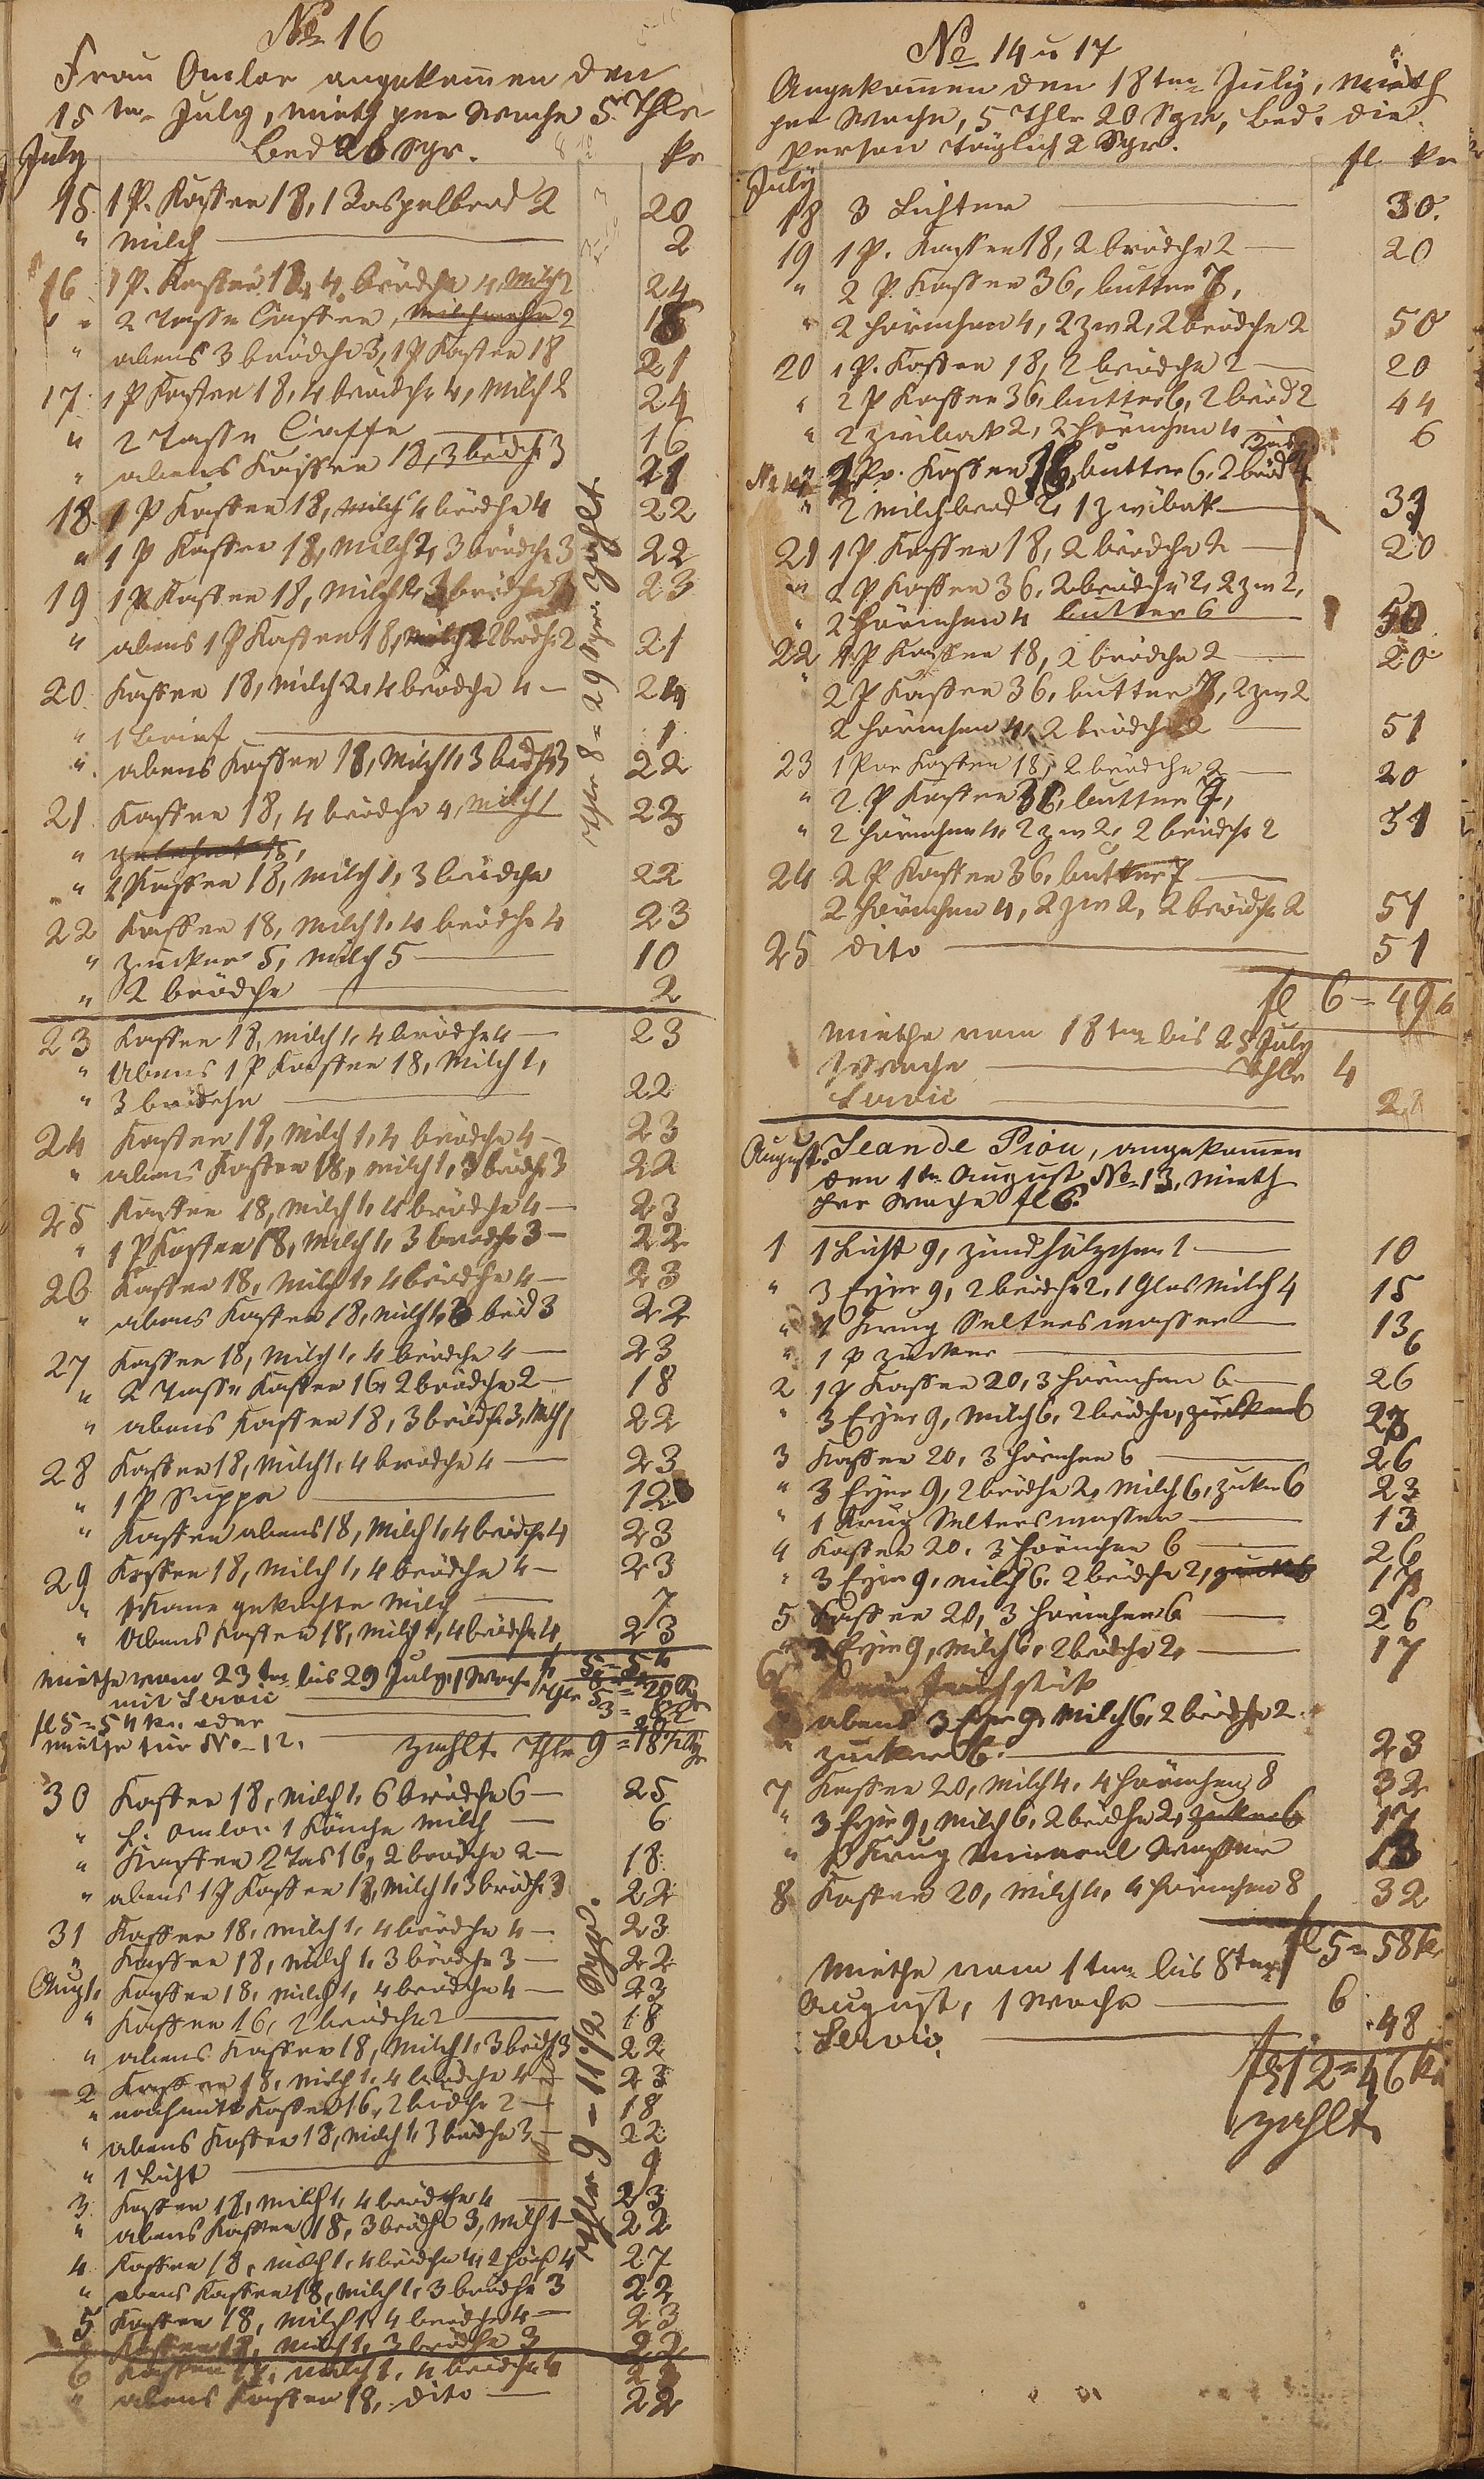 No 16
Frau Omlor angekom̄en den
15ten July, mieth per Woche 5 Thlr
July Bed 20 Sgr. kr
15 1 P. Kaffee 18, 1 Raspelbrod 2 20
" Milch 2
16 1 P. Kaffee 18, 4 brödche 4, Milch 2 24
" 2 Tasse Caffee, 16
" abens 3 brödche 3, 1 P Kaffee 18 21
17 1 P Kaffee 18, 4 brödche 4, Milch 2 24
" 2 Tasse Caffe 16
" abens Kaffee 18, 3 brödche 3 21
18 1 P Kaffee 18, Milch 4 brödche 4 22
" 1 P Kaffee 18, Milch 2, 3 brödche 3 22
19 1 P Kaffee 18, Milch 2, 3 brödche 3 23
" abens 1 P Kaffee 18, 2 brödche 2 21
20 Kaffee 18, Milch 2, 4 brödche 4 24
" 1 Brief 1
" abens Kaffee 18, Milch 1, 3 brödche 3 22
21 Kaffee 18, 4 brödche 4, Milch 1 23
" 1 P Kaffee 18, Milch 1, 3 brödche 22
22 Kaffee 18, Milch 1, 4 brödche 4 23
" Zucker 5, Milch 5 10
" 2 brödche 2
Thlr 8 = 29 Sgr. zahlt.
23 Kaffee 18, Milch 1, 4 brödche 4 23
" Abens 1 P Kaffee 18, Milch 1,
" 3 brödche 22
24 Kaffee 18, Milch 1, 4 brödche 4 23
" abens Kaffee 18, Milch 1, 3 brödche 3 22
25 Kaffee 18, Milch 1, 4 brödche 4 23
" 1 P Kaffee 18, Milch 1, 3 brödche 3 22
26 Kaffee 18, Milch 1, 4 brödche 4 23
" abens Kaffee 18, Milch 1, 3 bröd 3 22
27 Kaffee 18, Milch 1, 4 brödche 4 23
" 2 Tasse Kaffee 16, 2 brödche 2 18
" abens Kaffee 18, 3 brödche 3, Milch 1 22
28 Kaffee 18, Milch 1, 4 brödche 4 23
" 1 P Suppe 12
" Kaffee abens 18, Milch 1, 4 brödche 4 23
29 Kaffee 18, Milch 1, 4 brödche 4 23
" 1 Kane gekochte Milch 7
" Abens Kaffee 18, Milch 1, 4 brödche 4 23
Miethe vom 23ten bis 29 July, 1 Woche
mit Servic
fl 5 = 54 kr. oder
Miethe für No 12.
zahlt. Thlr 9 = 18½ Sgr
30 Kaffee 18, Milch 1, 6 brödche 6 25
" h. Omlor 1 Känche Milch 6
" Kaffee 2 Tas 16, 2 brödche 2 18
" abens 1 P Kaffee 18, Milch 1, 3 brödche 3 22
31 Kaffee 18, Milch 1, 4 brödche 4 23
" Kaffee 18, Milch 1, 3 brödche 3 22
Aug 1. Kaffee 18, Milch 1, 4 brödche 4 23
" Kaffee 16, 2 brödche 2 18
" abens Kaffee 18, Milch 1, 3 brödche 3 22
2 Kaffee 18, Milch 1, 4 brödche 4 23
" nachmitt Kaffee 16, 2 brödche 2 18
" abens Kaffee 18, Milch 1, 3 brödche 3 22
" 1 Licht 9
3 Kaffee 18, Milch 1, 4 brödche 4 23
" abens Kaffee 18, 3 brödche 3, Milch 1 22
4 Kaffee 18, Milch 1, 4 brödche 4, 2 Hörch 4 27
" abens Kaffee 18, Milch 1, 3 brödche 3 22
5 Kaffee 18, Milch 1, 4 brödche 4 23
" Kaffee 18, Milch 1, 3 brödche 3 22
Thlr 9 – 11½ Sgr.
6 Kaffee 18, Milch 1, 4 brödche 4 23
" abens Kaffee 18, dito 22
No 14 u 17
Angekom̄en den 18ten July, mieth
per Woche, 5 Thlr 20 Sgr, Bed. die
Person täglich 2 Sgr.
July fl kr
18 3 Lichter 30.
19 1 P. Kaffee 18, 2 brödche 2 20
" 2 P Kaffee 36, butter 7,
" 2 Hörnchen 4, 2 zw 2, 2 brödche 2 50
20 1 P. Kaffee 18, 2 brödche 2 20
" 2 P Kaffee 36, butter 6, 2 bröd 2 44
" 2 zwibak 2, 2 Hörnchen 4 6
1 Por. Kaffee 18, butter 6, 2 bröd
" 2 Milchbrod 2, 1 zwibak 33
21 1 P Kaffee 18, 2 brödche 2 20
" 2 P Kaffee 36, 2 brödche 2, 2 zw 2,
" 2 Hörnchen 4 butter 6 50
22 1 P Kaffee 18, 2 brödche 2 20
" 2 P Kaffee 36, butter 7, 2 zw 2
2 Hörnchen 4, 2 brödche 2 51
23 1 Por Kaffee 18, 2 brödche 2 20
" 2 P Kaffee 36, butter 7,
" 2 Hörnchen 4, 2 zw 2, 2 brödche 2 51
24 2 P Kaffee 36, butter 7
2 Hörnchen 4, 2 zw 2, 2 brödche 2 51
25 dito 51
fl 6 = 49 k
Miethe vom 18ten bis 25 July
1 Woche Thlr 4
Servic
August. Jean de Piou, angekom̄en
den 1ten August No 13, Mieth
per Woche fl 6.
1 1 Licht 9, Zündhölzchen 1 10
" 3 Eyer 9, 2 brödche 2, 1 Glas Milch 4 15
" 1 Krug Selterswasser 13
" 1 P Zucker 6
2 1 P Kaffee 20, 3 Hörnchen 6 26
" 3 Eyer 9, Milch 6, 2 brödche, Zucker 6 23
3 Kaffee 20, 3 Hörnchen 6 26
" 3 Eyer 9, 2 brödche 2, Milch 6, Zuker 6 23
" 1 Krug Selterswasser 13
4 Kaffee 20, 3 Hörnchen 6 26
" 3 Eyer 9, Milch 6, 2 brödche 2, 17
5 Kaffee 20, 3 Hörnchen 6 26
" 3 Eyer 9, Milch 6, 2 brödche 2, 17
6 Kein Frühstük
" abens 3 Eyer 9, Milch 6, 2 brödche 2
" Zucker 6. 23
7 Kaffee 20, Milch 4, 4 Hörnchen 8 32
" 3 Eyer 9, Milch 6, 2 brödche 2, Zuker 6 17
" 1 Krug Mineral Wasser 13
8 Kaffee 20, Milch 4, 4 Hörnchen 8 32
fl 5 = 58 k
Miethe vom 1ten bis 8ten
August, 1 Woche 6
Servic, 48
fl 12 = 46 k
zahlt